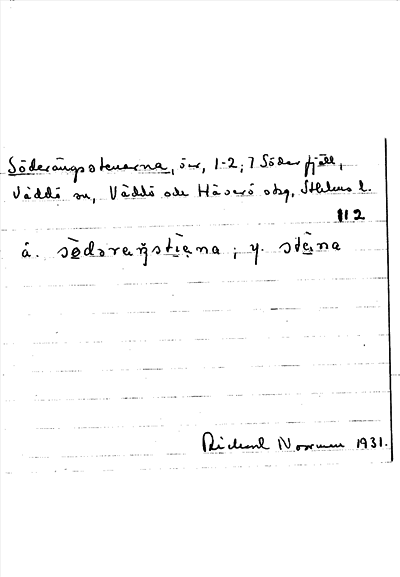 Söderängsstenarna, öar, 1-2; 7 Söderfjäll,
Väddö sn, Väddö och Häverö skg, Sthlms l.
112
á. sèdəraŋstìe̯na; y. stèina
Richard Norrman 1931.